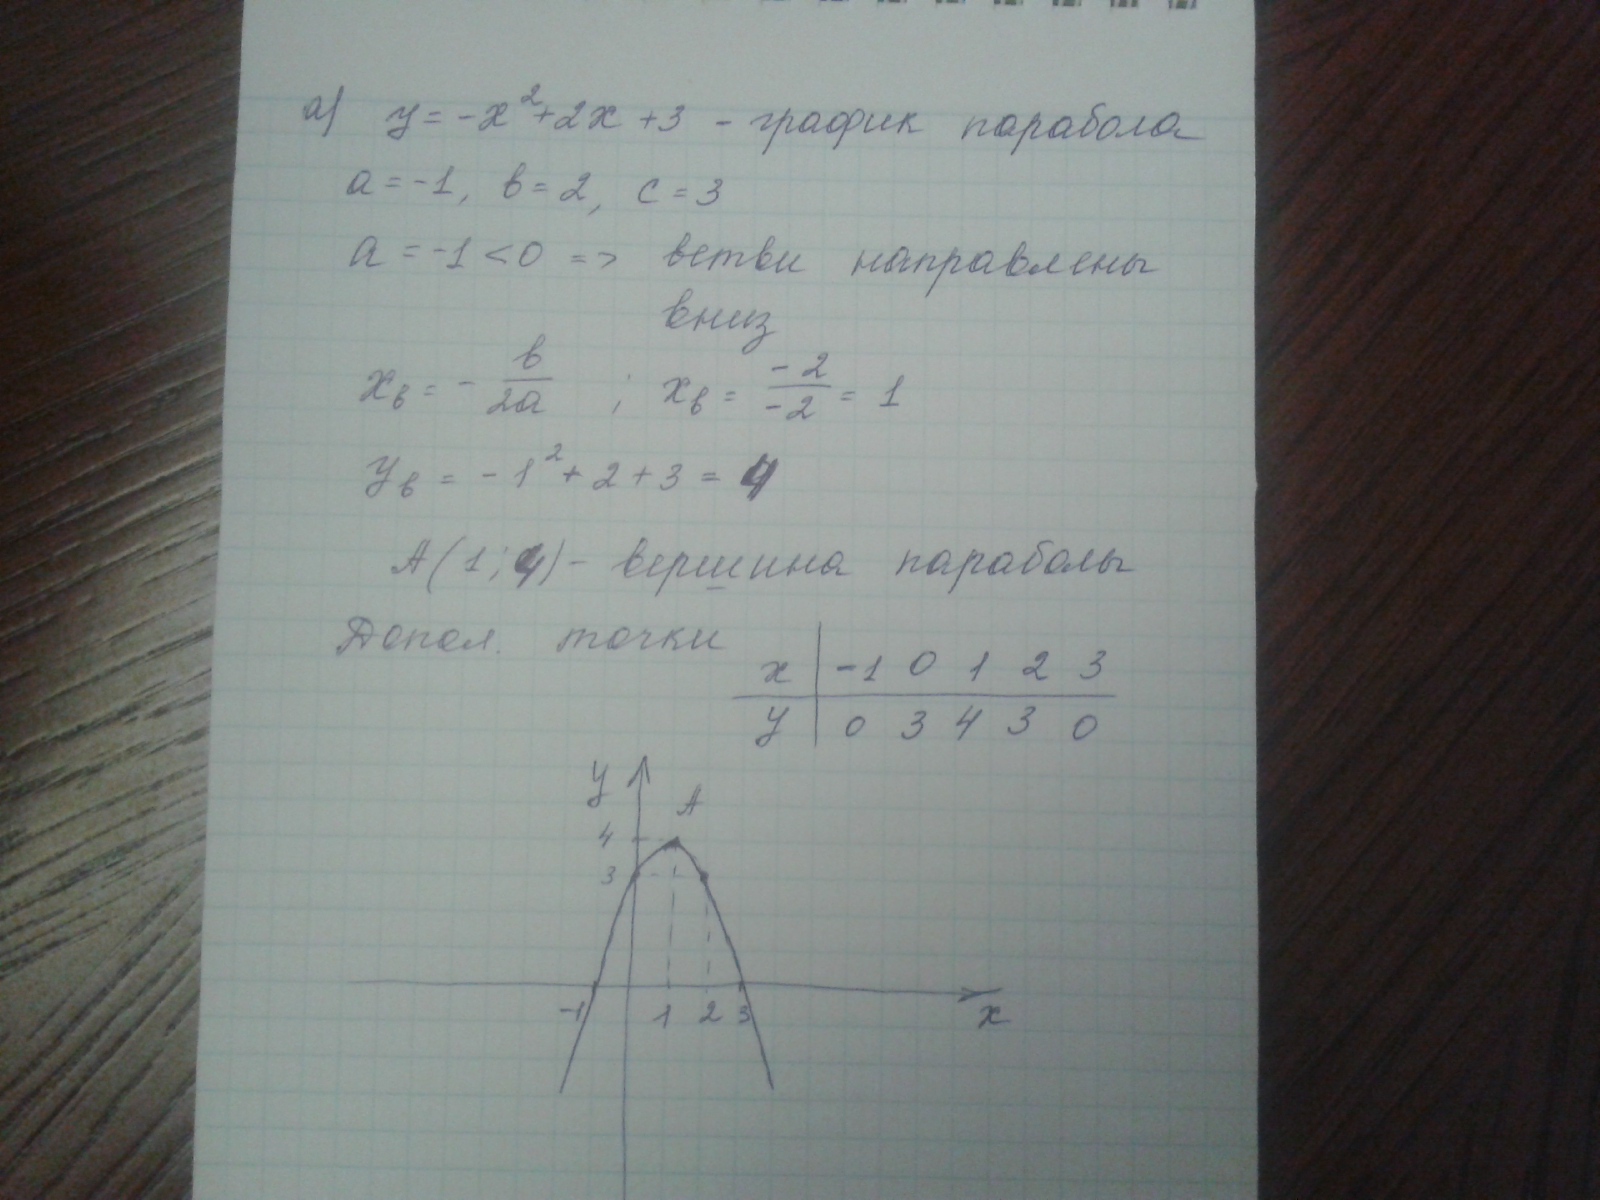 а) y = -x²+2x+3 - график парабола
a = -1, в = 2, c = 3
a = -1 < 0 => ветви направлены
вниз
xв = - в/2a ; xв = -2/-2 = 1
yв = -1² + 2 + 3 = 4
A(1; 4) - вершина параболы
Допол. точки
x | -1 0 1 2 3
y | 0 3 4 3 0
y
A
4
3
-1 1 2 3
x